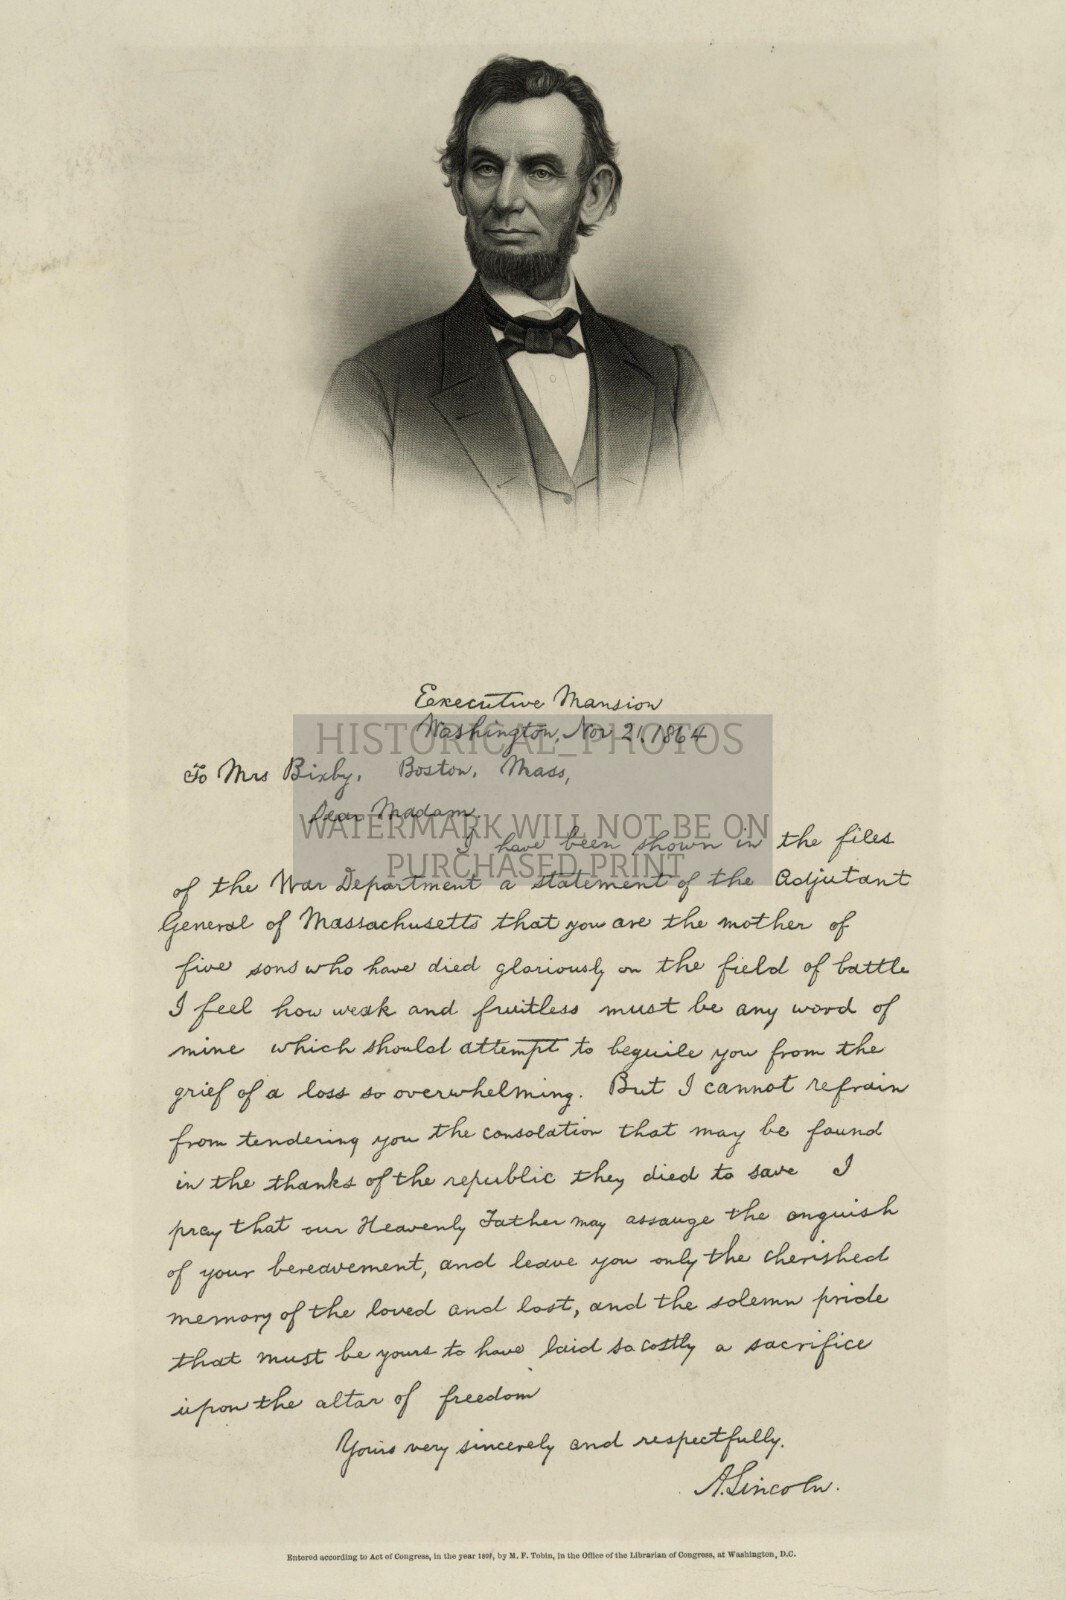 Executive Mansion
Washington, Nov 21, 1864
To Mrs Bixby, Boston, Mass,
Dear Madam,
I have been shown in the files
of the War Department a statement of the Adjutant
General of Massachusetts that you are the mother of
five sons who have died gloriously on the field of battle
I feel how weak and fruitless must be any word of
mine which should attempt to beguile you from the
grief of a loss so overwhelming. But I cannot refrain
from tendering you the consolation that may be found
in the thanks of the republic they died to save I
pray that our Heavenly Father may assauge the anguish
of your bereavement, and leave you only the cherished
memory of the loved and lost, and the solemn pride
that must be yours to have laid so costly a sacrifice
upon the altar of freedom
Yours very sincerely and respectfully.
A. Lincoln.
HISTORICAL_PHOTOS
WATERMARK WILL NOT BE ON
PURCHASED PRINT
Entered according to Act of Congress, in the year by M. F. Tobin, in the Office of the Librarian of Congress, at Washington, D.C.